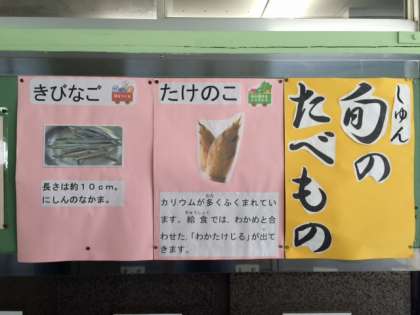 しゅん
旬の
たべもの
たけのこ
カリウムが多くふくまれてい
ます。給食では、わかめと合
わせた、「わかたけじる」が出て
きます。
きびなご
長さは約10cm。
にしんのなかま。